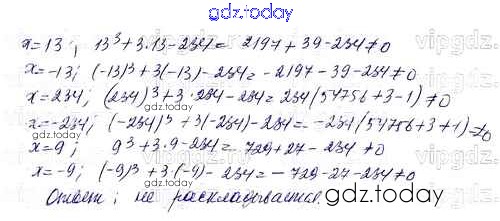 gdz.today
x=13; 13³+3·13-234= 2197+39-234≠0
x=-13; (-13)³+3(-13)-234=-2197-39-234≠0
x=234; (234)³+3·234-234=234(54756+3-1)≠0
x=-234; (-234)³+3(-234)-234=-234(54756+3+1)≠0
x=9; 9³+3·9-234=729+27-234≠0
x=-9; (-9)³+3·(-9)-234=-729-27-234≠0
Ответ: не раскладывается.
gdz.today